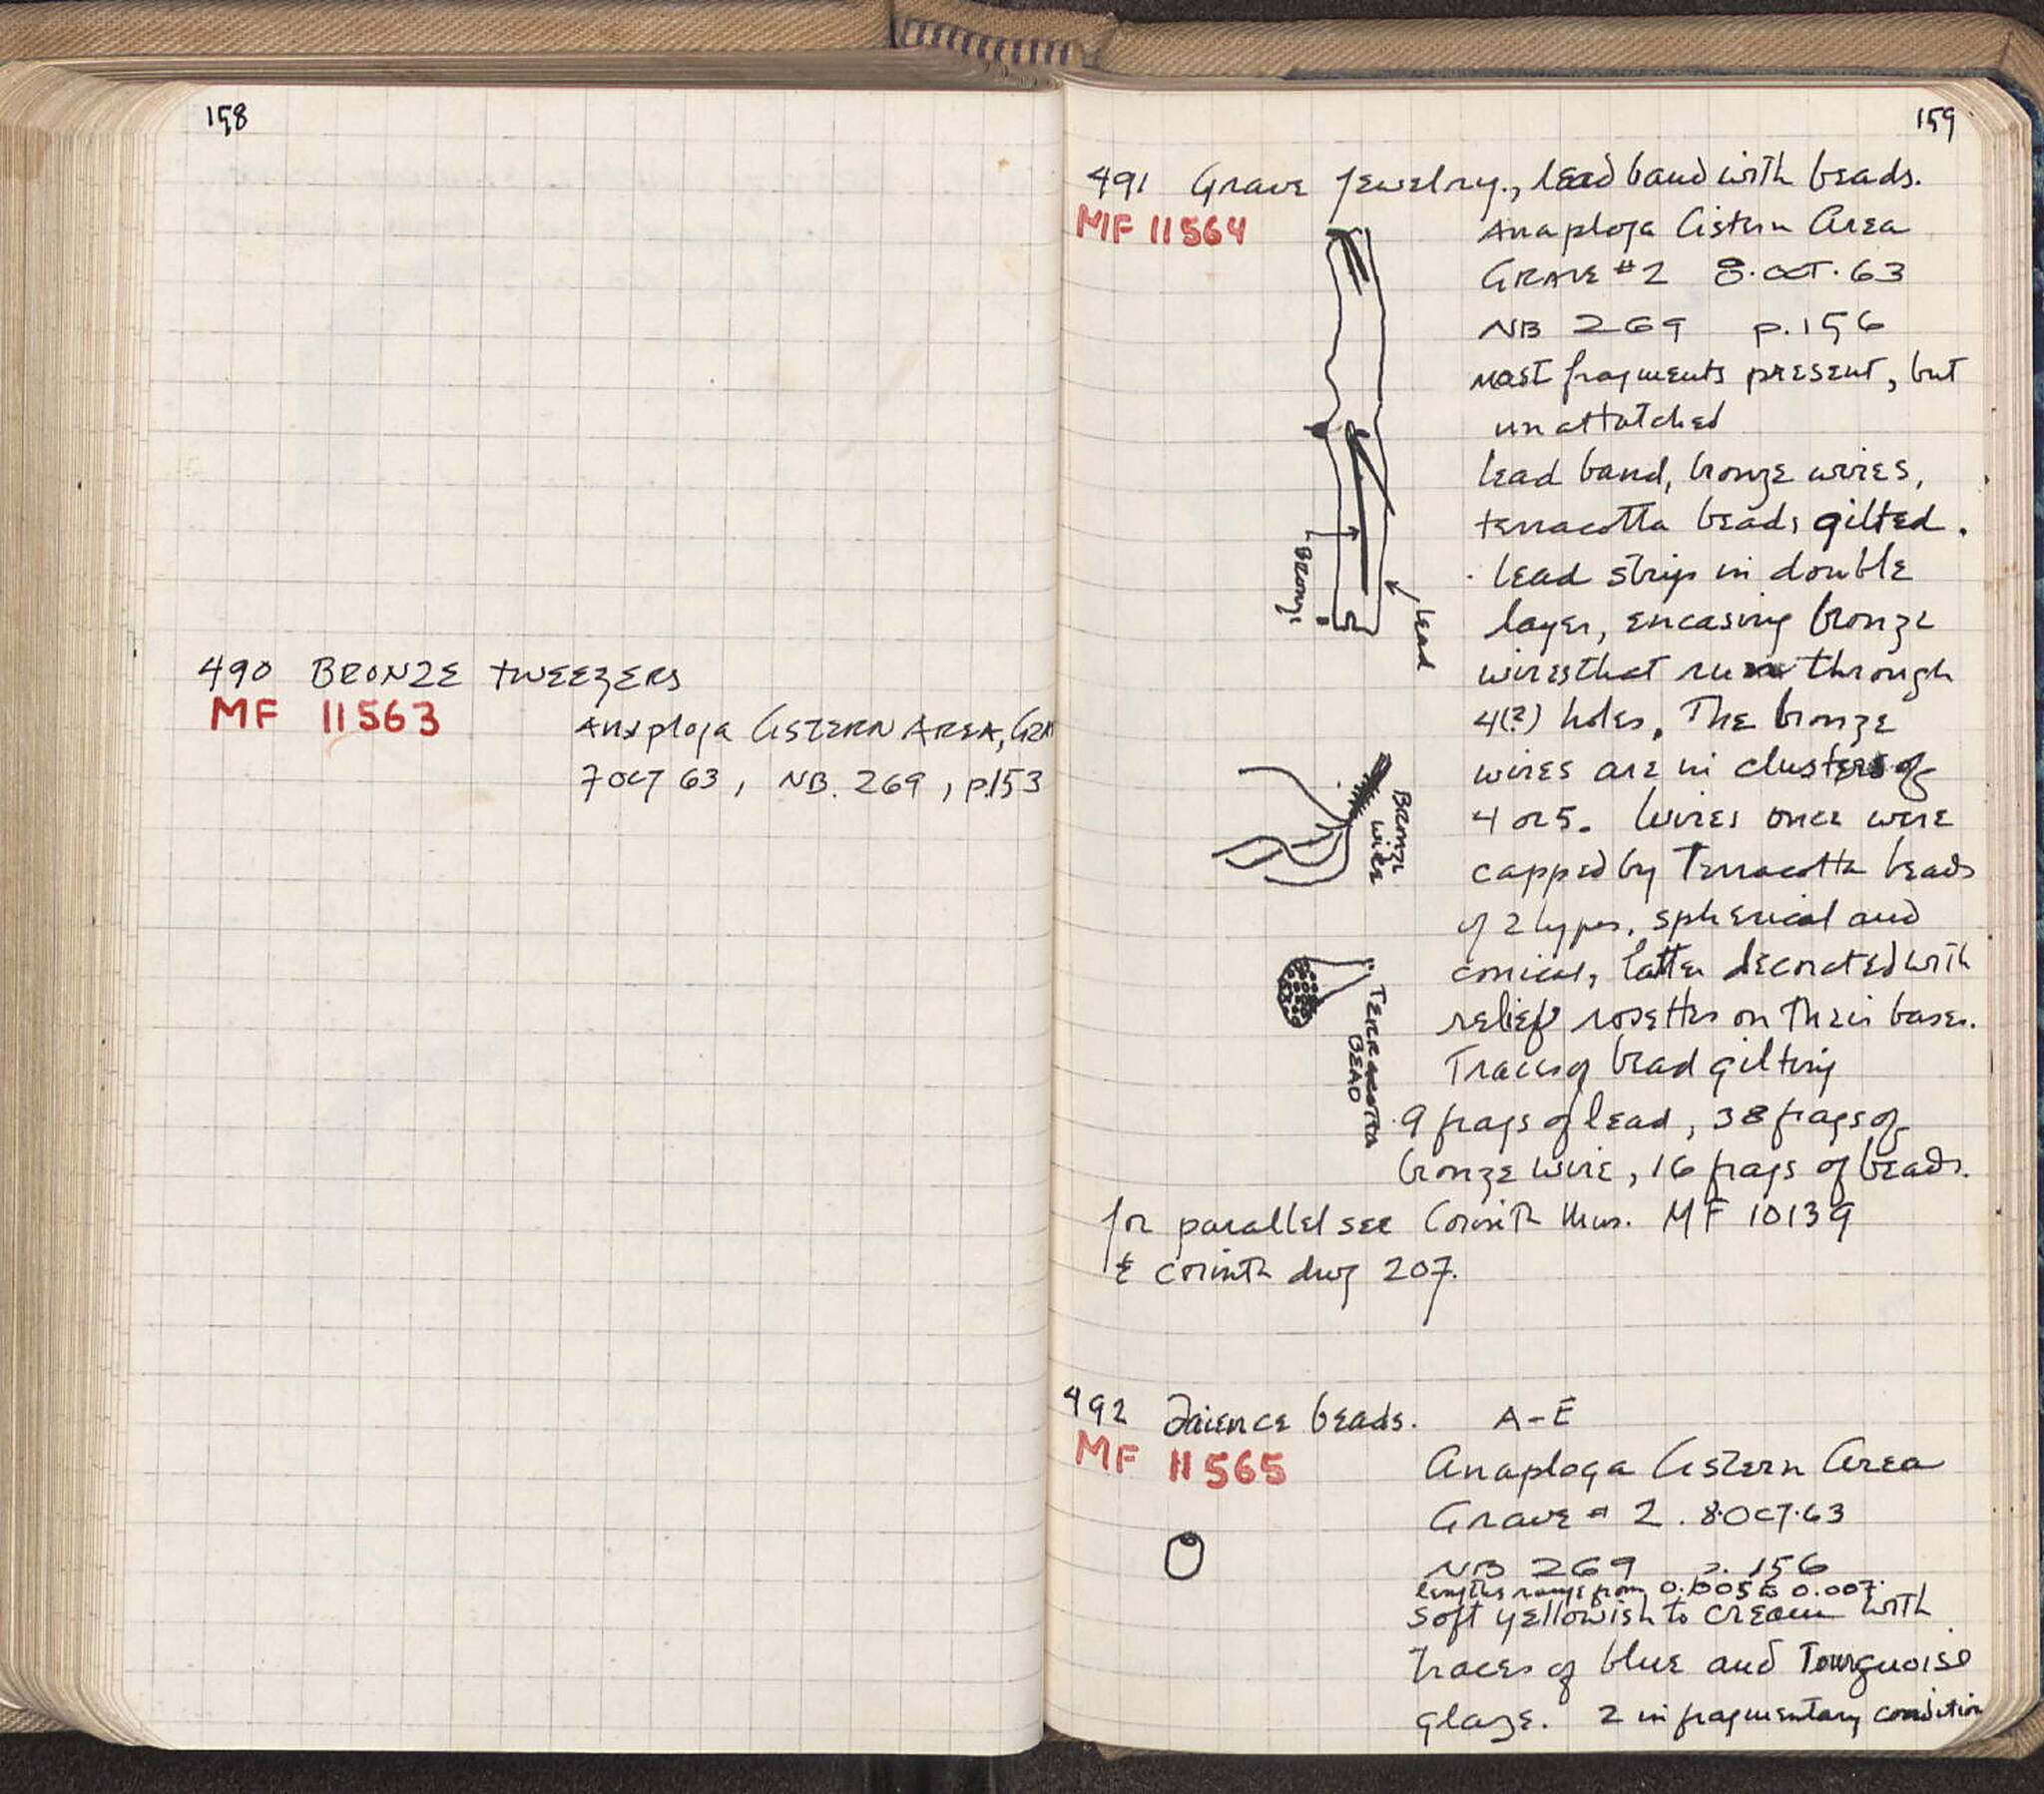 158
490 BRONZE tWEEZERS
MF 11563
Anaploja CISTERN AREA,
7 OCT 63, NB. 269, p.153
159
491 Grave Jewelry., lead band with beads.
MF 11564
Anaploja Cistern Area
GRAVE #2 8.OCT.63
NB 269 p.156
most fragments present, but
unattatched
lead band, bronze wires,
terracotta beads gilted.
lead strip in double
layer, encasing bronze
wires that run through
4(?) holes. The bronze
wires are in clusters of
4 or 5. Wires once were
capped by Terracotta beads
of 2 types, spherical and
conical, latter decorated with
relief rosettes on their bases.
Traces of bead gilting
9 frags of lead, 38 frags of
bronze wire, 16 frags of beads.
for parallel see Corinth Mus. MF 10139
& Corinth dwg 207.
Bronze
Lead
BRONZE
WIRE
TERRACOTTA
BEAD
492 Faience beads. A-E
MF 11565
Anaploga Cistern Area
Grave # 2. 8.OCT.63
NB 269 p.156
lengths range from 0.005 to 0.007.
Soft yellowish to cream with
Traces of blue and Tourquoise
glaze. 2 in fragmentary condition